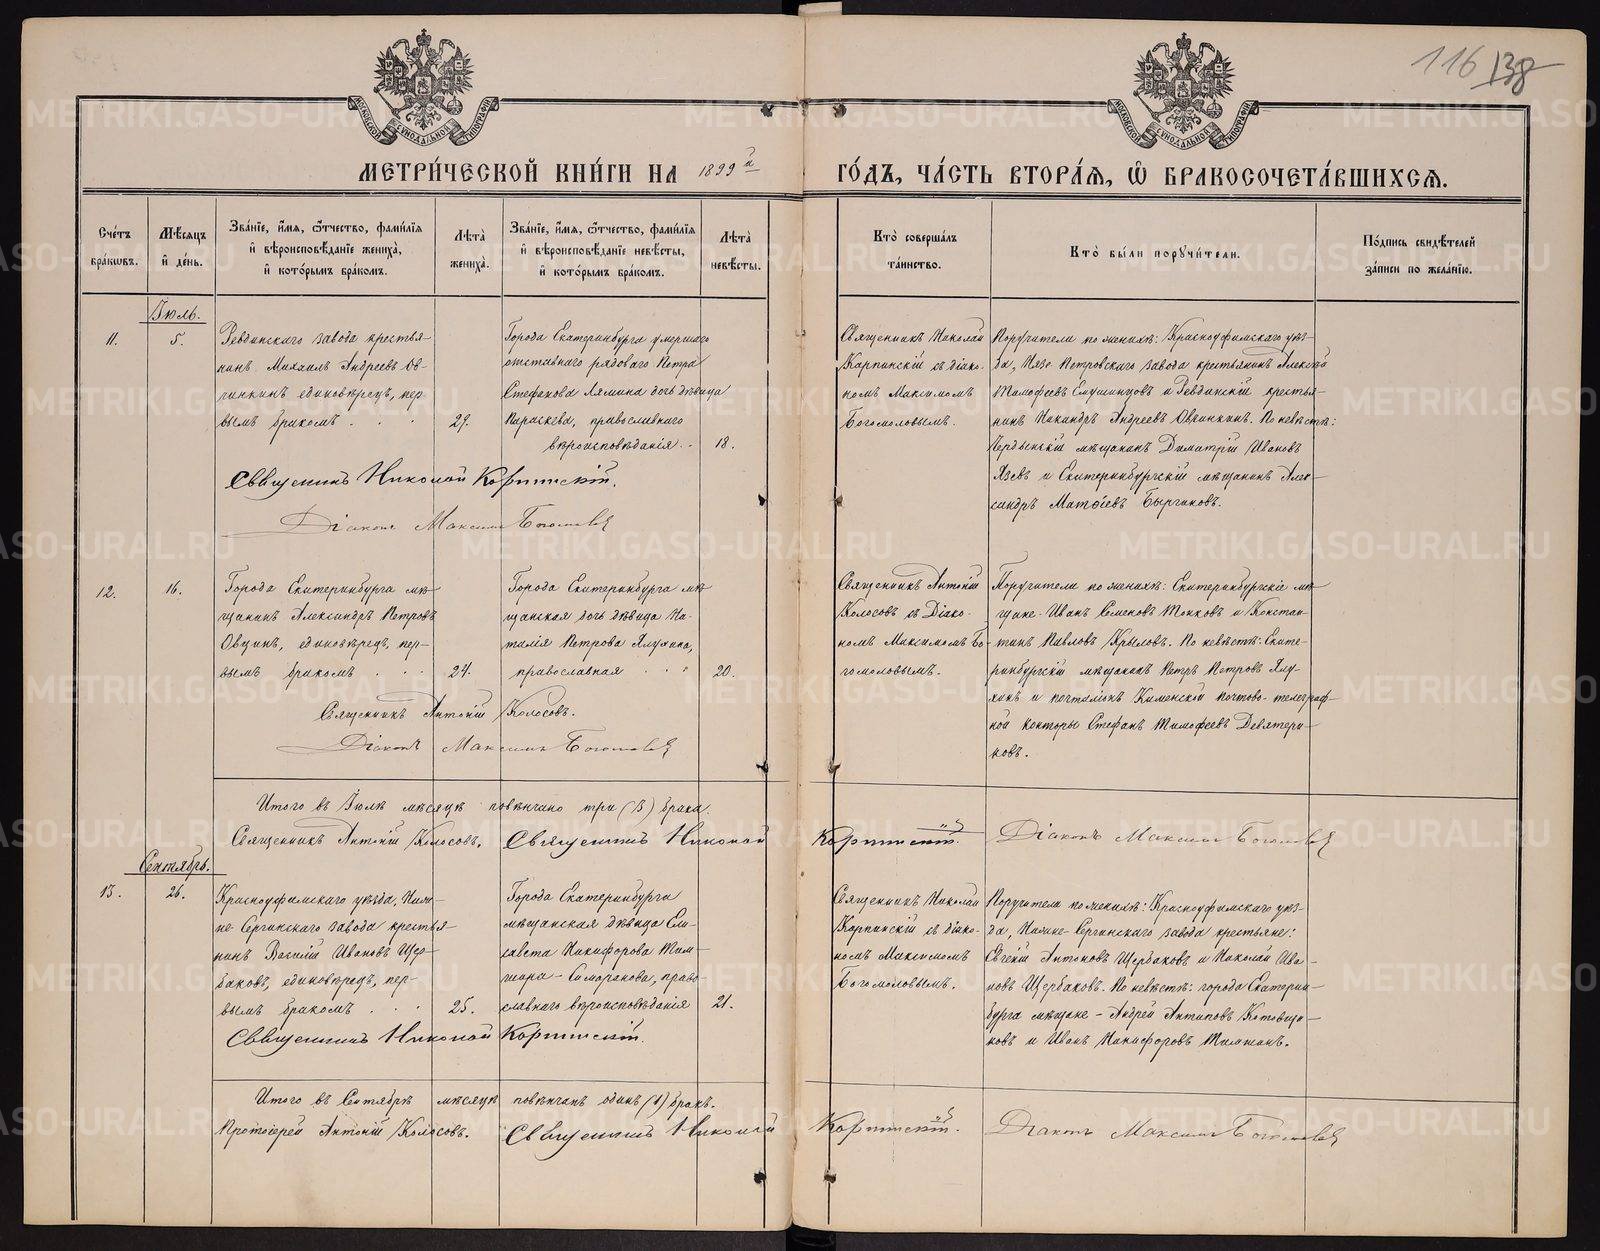 116 138
МОСКОВСКОЙ СѴНОДАЛЬНОЙ ТИПОГРАФІИ
МОСКОВСКОЙ СѴНОДАЛЬНОЙ ТИПОГРАФІИ
МЕТРИ́ЧЕСКОЙ КНИ́ГИ НА 1899 й ГО́ДЪ, ЧА́СТЬ ВТОРА́Ѧ, Ѽ БРАКОСОЧЕТА́ВШИХСѦ.
Сче́тъ бра́кѡвъ.
Мѣ́сѧцъ и҆ де́нь.
Зва́нїе, и҆́мѧ, ѻ҆́тчество, фами́лїѧ и҆ вѣроисповѣ́данїе жениха̀, и҆ кото́рымъ бра́комъ.
Лѣта̀ жениха̀.
Зва́нїе, и҆́мѧ, ѻ҆́тчество, фами́лїѧ и҆ вѣроисповѣ́данїе невѣ́сты, и҆ кото́рымъ бра́комъ.
Лѣта̀ невѣ́сты.
Кто̀ соверша́лъ та́инство.
Кто̀ бы́ли порꙋчи́тели.
По́дпись свидѣ́телей за́писи по жела́нїю.
Іюль.
11.
5.
Ревдинскаго завода крестья-
нинъ Михаилъ Андреевъ Ов-
чинкинъ единовѣрецъ, пер-
вымъ бракомъ . . .
29.
Города Екатеринбурга умершаго
отставнаго рядоваго Петра
Стефанова Лямина дочь дѣвица
Параскева, православнаго
вѣроисповѣданія . .
18.
Священникъ Николай
Карпинскій съ діако-
номъ Максимомъ
Богомоловымъ.
Поручители по женихѣ: Красноуфимскаго уѣз-
да, Нязе-Петровскаго завода крестьянинъ Алексѣй
Тимофеевъ и Ревдинскій крестья-
нинъ Никандръ Андреевъ Овчинкинъ. По невѣстѣ:
Чердынскій мѣщанинъ Димитрій Ивановъ
Язевъ и Екатеринбургскій мѣщанинъ Алек-
сандръ Матѳіевъ
Священникъ Николай Карпинскій.
Діаконъ Максимъ Богомоловъ
12.
16.
Города Екатеринбурга мѣ-
щанинъ Александръ Петровъ
Овчинъ, единовѣрецъ, пер-
вымъ бракомъ . . .
24.
Города Екатеринбурга мѣ-
щанская дочь дѣвица На-
талія Петрова Ялухина,
православная . . .
20.
Священникъ Антоній
Колосовъ съ Діако-
номъ Максимомъ Бо-
гомоловымъ.
Поручители по женихѣ: Екатеринбургскіе мѣ-
щане Иванъ Семеновъ Тонковъ и Констан-
тинъ Павловъ Крыловъ. По невѣстѣ: Екате-
ринбургскій мѣщанинъ Петръ Петровъ Ялу-
хинъ и почталіонъ почтово-телеграф-
ной конторы Стефанъ Тимофеевъ Девятери-
ковъ.
Священникъ Антоній Колосовъ.
Діаконъ Максимъ Богомоловъ
Итого въ Іюлѣ мѣсяцѣ повѣнчано три (3) брака.
Священникъ Антоній Колосовъ. Священникъ Николай Карпинскій. Діаконъ Максимъ Богомоловъ
Сентябрь.
13.
26.
Красноуфимскаго уѣзда, Ниж-
не-Сергинскаго завода крестья-
нинъ Василій Ивановъ Щер-
баковъ, единовѣрецъ, пер-
вымъ бракомъ . . .
25.
Города Екатеринбурга
мѣщанская дѣвица Ели-
савета Никифорова Тим-
шина-Симаранова, право-
славнаго вѣроисповѣданія
21.
Священникъ Николай
Карпинскій съ діако-
номъ Максимомъ
Богомоловымъ.
Поручители по женихѣ: Красноуфимскаго уѣз-
да, Нижне-Сергинскаго завода крестьяне:
Евгеній Антоновъ Щербаковъ и Николай Ива-
новъ Щербаковъ. По невѣстѣ: города Екатерин-
бурга мѣщане - Андрей Антиповъ Котовщи-
ковъ и Иванъ Никифоровъ Тимшинъ.
Священникъ Николай Карпинскій.
Итого въ Сентябрѣ мѣсяцѣ повѣнчанъ одинъ (1) бракъ.
Протоіерей Антоній Колосовъ. Священникъ Николай Карпинскій. Діаконъ Максимъ Богомоловъ
METRIKI.GASO-URAL.RU